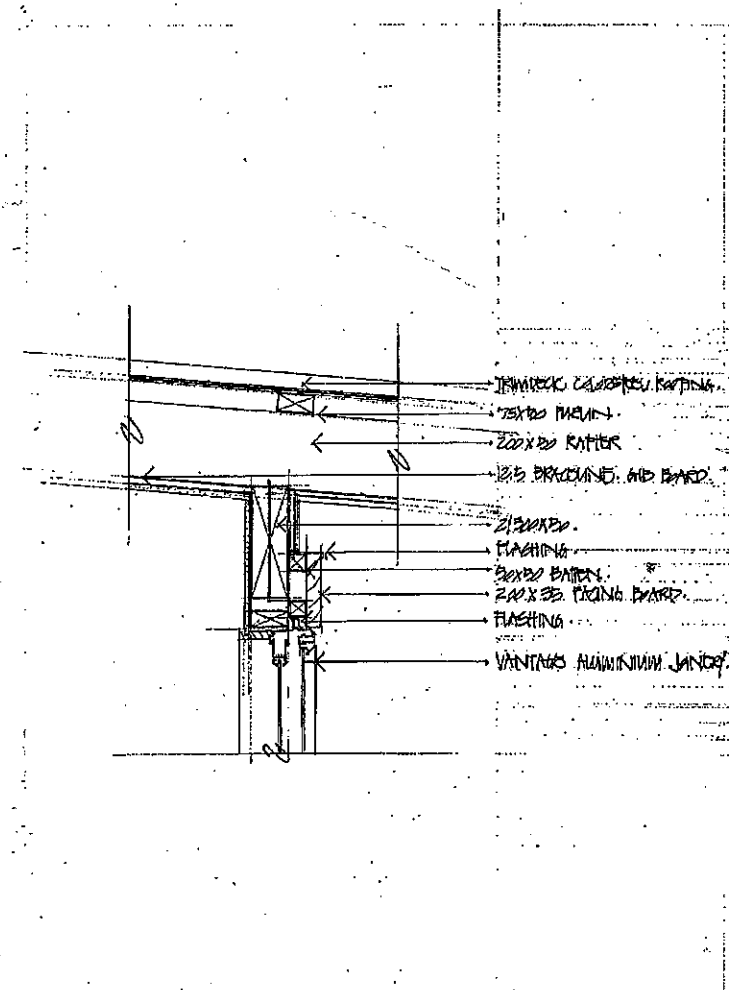 TRIMDECK COLORSTEEL ROOFING.
75X50 PURLIN.
200X50 RAFTER
12.5 BRACELINE GIB BOARD
2/300X50.
FLASHING
50X50 BATTEN.
200X35 FACING BOARD.
FLASHING
VANTAGE ALUMINIUM JOINERY